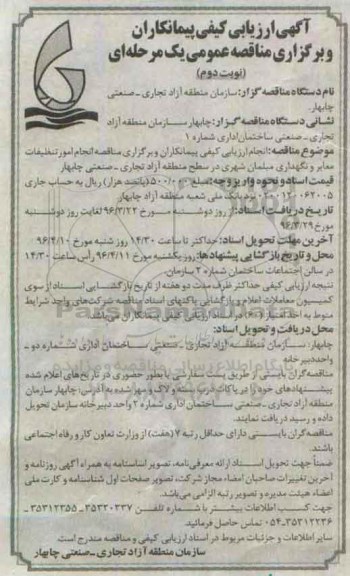 آگهی ارزیابی کیفی پیمانکاران
و برگزاری مناقصه عمومی یک مرحله‌ای
(نوبت دوم)
نام دستگاه مناقصه گزار: سازمان منطقه آزاد تجاری - صنعتی
چابهار
نشانی دستگاه مناقصه گزار: چابهار سازمان منطقه آزاد
تجاری - صنعتی ساختمان اداری شماره ۱
موضوع مناقصه: انجام ارزیابی کیفی پیمانکاران و برگزاری مناقصه انجام امور تنظیفات
معابر و نگهداری مبلمان شهری در سطح منطقه آزاد تجاری - صنعتی چابهار
قیمت اسناد و نحوه واریز وجه: مبلغ ۵۰۰/۰۰۰ (پانصد هزار) ریال به حساب جاری
نزد بانک ملی شعبه منطقه آزاد چابهار
تاریخ دریافت اسناد: از روز دوشنبه مورخ ۹۶/۳/۲۲ لغایت روز دوشنبه
مورخ ۹۶/۳/۲۹
آخرین مهلت تحویل اسناد: حداکثر تا ساعت ۱۴/۳۰ روز شنبه مورخ ۹۶/۴/۱۰
محل و تاریخ بازگشایی پیشنهادها: روز یکشنبه مورخ ۹۶/۴/۱۱ رأس ساعت ۱۴/۳۰
در سالن اجتماعات ساختمان شماره ۲ سازمان.
نتیجه ارزیابی کیفی حداکثر ظرف مدت دو هفته از تاریخ بازگشایی اسناد از سوی
کمیسیون معاملات اعلام و بازگشایی پاکتهای اسناد مناقصه شرکت‌های واجد شرایط
منوط به اخذ امتیاز در اسناد ارزیابی کیفی پیمانکاران می‌باشد.
محل دریافت و تحویل اسناد:
چابهار، سازمان منطقه آزاد تجاری - صنعتی ساختمان اداری شماره دو -
واحد دبیرخانه
مناقصه گران بایستی از طریق پست سفارشی یا بطور حضوری در تاریخ‌های اعلام شده
پیشنهادهای خود را در پاکات دربسته و لاک و مهر شده به آدرس: چابهار سازمان
منطقه آزاد تجاری - صنعتی ساختمان اداری شماره ۲ واحد دبیرخانه سازمان تحویل
داده و رسید دریافت نمایند.
مناقصه گران بایستی دارای حداقل رتبه ۷ (هفت) از وزارت تعاون کار و رفاه اجتماعی
باشند.
ضمناً جهت تحویل اسناد ارائه معرفی‌نامه، تصویر اساسنامه به همراه آگهی روزنامه و
آخرین تغییرات صاحبان امضاء مجاز شرکت، تصویر صفحات اول شناسنامه و کارت ملی
اعضاء هیئت مدیره و تصویر رتبه الزامی می‌باشد.
جهت کسب اطلاعات بیشتر با شماره تلفن ۳۵۳۲۰۳۳۷ - ۳۵۳۱۲۳۵۵ -
۰۵۴-۳۵۳۱۲۲۳۶ تماس حاصل فرمائید.
سایر اطلاعات و جزئیات مربوط در اسناد ارزیابی کیفی و مناقصه مندرج است.
سازمان منطقه آزاد تجاری - صنعتی چابهار